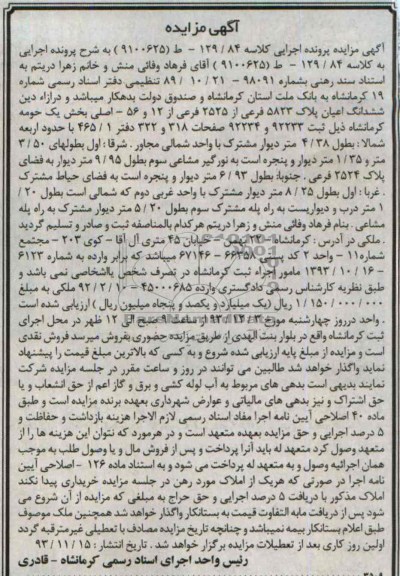 آگهی مزایده
آگهی مزایده پرونده اجرایی کلاسه ۸۴ / ۱۲۹ - ط (۹۱۰۰۶۲۵) به شرح پرونده اجرایی
به کلاسه ۸۴ / ۱۲۹ - ط (۹۱۰۰۶۲۵) آقای فرهاد وفائی منش و خانم زهرا دریتم به
استناد سند رهنی بشماره ۹۸۰۹۱ - ۲۱ / ۱۰ / ۸۹ تنظیمی دفتر اسناد رسمی شماره
۱۹ کرمانشاه به بانک ملت استان کرمانشاه و صندوق دولت بدهکار میباشد و درازاء دین
ششدانگ اعیان پلاک ۵۸۲۳ فرعی از ۲۵۲۵ فرعی از ۱۲ و ۵۶ - اصلی بخش یک حومه
کرمانشاه ذیل ثبت ۹۲۲۳۳ و ۹۲۲۳۴ صفحات ۳۱۸ و ۳۲۲ دفتر ۱ / ۴۶۵ با حدود اربعه
شمالا : بطول ۳۸ / ۴ متر دیوار مشترک با واحد شمالی مجاور . شرقا : اول بطولهای ۵۰ / ۳
متر و ۳۵ / ۱ متر دیوار و پنجره است به نورگیر مشاعی سوم بطول ۹۵ / ۹ متر دیوار به فضای
پلاک ۲۵۲۴ فرعی . جنوبا: بطول ۹۳ / ۶ متر دیوار و پنجره است به فضای حیاط مشترک
. غربا : اول بطول ۲۵ / ۸ متر دیوار مشترک با واحد غربی دوم که شمالی است بطول ۲۰ /
۱ متر درب و دیواریست به راه پله مشترک سوم بطول ۲۰ / ۵ متر دیوار مشترک به راه پله
مشاعی . بنام فرهاد وفائی منش و زهرا دریتم هرکدام بالمناصفه ثبت و صادر و تسلیم گردید
. ملکی در آدرس : کرمانشاه - خیابان ۴۵ متری آل آقا - کوی ۲۰۳ - مجتمع
شماره۱۱ - واحد ۲ کد پستی ۶۶۳۵۸ - ۶۷۱۴۶ میباشد که برابر وارده به شماره ۶۱۲۳
- ۱۶ / ۱۰ / ۱۳۹۳ مامور اجراء ثبت کرمانشاه در تصرف شخص یااشخاصی نمی باشد و
طبق نظریه کارشناس رسمی دادگستری وارده ۴۵۰۰۰۶۸۵ - ۱۰ / ۲ / ۹۲ ملکی به مبلغ
۰۰۰ / ۰۰۰ / ۱۵۰ / ۱ ریال (یک میلیارد و یکصد و پنجاه میلیون ریال ) ارزیابی شده است
. واحد درروز چهارشنبه مورخ ۹۳ از ساعت ۹ صبح الی ۱۲ ظهر در محل اجرای
ثبت کرمانشاه واقع در بلوار بنت الهدی از طریق مزایده حضوری بفروش میرسد فروش نقدی
است و مزایده از مبلغ پایه ارزیابی شده شروع و به کسی که بالاترین مبلغ قیمت را پیشنهاد
نماید واگذار خواهد شد طالبین می توانند در روز و ساعت مقرر در جلسه مزایده شرکت
نمایند بدیهی است بدهی های مربوط به آب لوله کشی و برق و گاز اعم از حق انشعاب و یا
حق اشتراک و نیز بدهی های مالیاتی و عوارض شهرداری بعهده برنده مزایده است و طبق
ماده ۴۰ اصلاحی آیین نامه اجرا مفاد اسناد رسمی لازم الاجرا هزینه بازداشت و حفاظت و
۵ درصد اجرایی و حق مزایده بعهده متعهد است و در هرمورد که نتوان این هزینه ها را از
متعهد وصول کرد متعهد له باید آنرا پرداخت و پس از فروش مال و یا وصول طلب به موجب
همان اجرائیه وصول و به متعهد له پرداخت می شود و به استناد ماده ۱۲۶ - اصلاحی آیین
نامه اجرا در صورتی که هریک از املاک مورد رهن در جلسه مزایده خریداری پیدا نکند
املاک مذکور با دریافت ۵ درصد اجرایی و حق حراج به مبلغی که مزایده از آن شروع می
شود پس از دریافت مابه التفاوت قیمت به بستانکار واگذار خواهد شد همچنین ملک موصوف
طبق اعلام بستانکار بیمه نمیباشد و چنانچه تاریخ مزایده مصادف با تعطیلی غیرمترقبه گردد
اولین روز کاری بعد از تعطیلات مزایده برگزار خواهد شد . تاریخ انتشار : ۱۵ / ۱۱ / ۹۳
رئیس واحد اجرای اسناد رسمی کرمانشاه - قادری